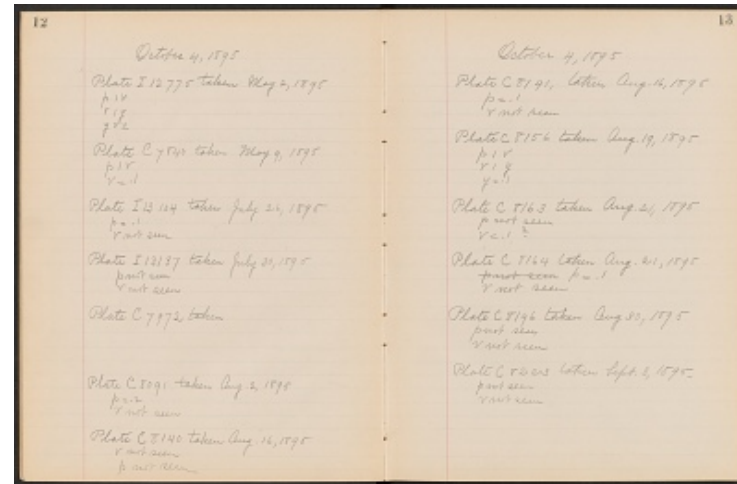 12
October 4, 1895
Plate I 12775 taken May 2, 1895
p 1 r
r 1 g
Plate C 7840 taken May 9, 1895
p 1 r
r = .1
Plate I 13104 taken July 26, 1895
p = .1
r not seen
Plate I 13137 taken July 30, 1895
p not seen
r not seen
Plate C 7972 taken
Plate C 8091 taken Aug. 2, 1895
p = .2
r not seen
Plate C 8140 taken Aug. 16, 1895
r not seen
p not seen
13
October 4, 1895
Plate C 8141, taken Aug. 16, 1895
p = .1
r not seen
Plate C 8156 taken Aug. 19, 1895
p 1 r
r 1 g
g = .1
Plate C 8163 taken Aug. 21, 1895
p not seen
r = .1 ?
Plate C 8164 taken Aug. 21, 1895
p not seen p = .1
r not seen
Plate C 8196 taken Aug 30, 1895
p not seen
r not seen
Plate C taken Sept. 3, 1895
p not seen
r not seen